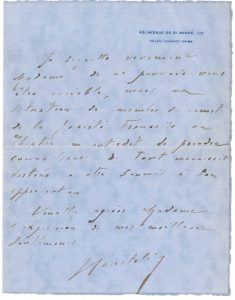 44, AVENUE DE ST MANDÉ
Je regrette vivement
Madame, de ne pouvoir vous
être agréable, mais ma
situation de membre du conseil
de la Société Française
m'interdit de prendre
de tout manuscrit
destiné à être soumis à son
appréciation.
Veuillez agréer Madame
l'expression de mes meilleurs
sentiments.